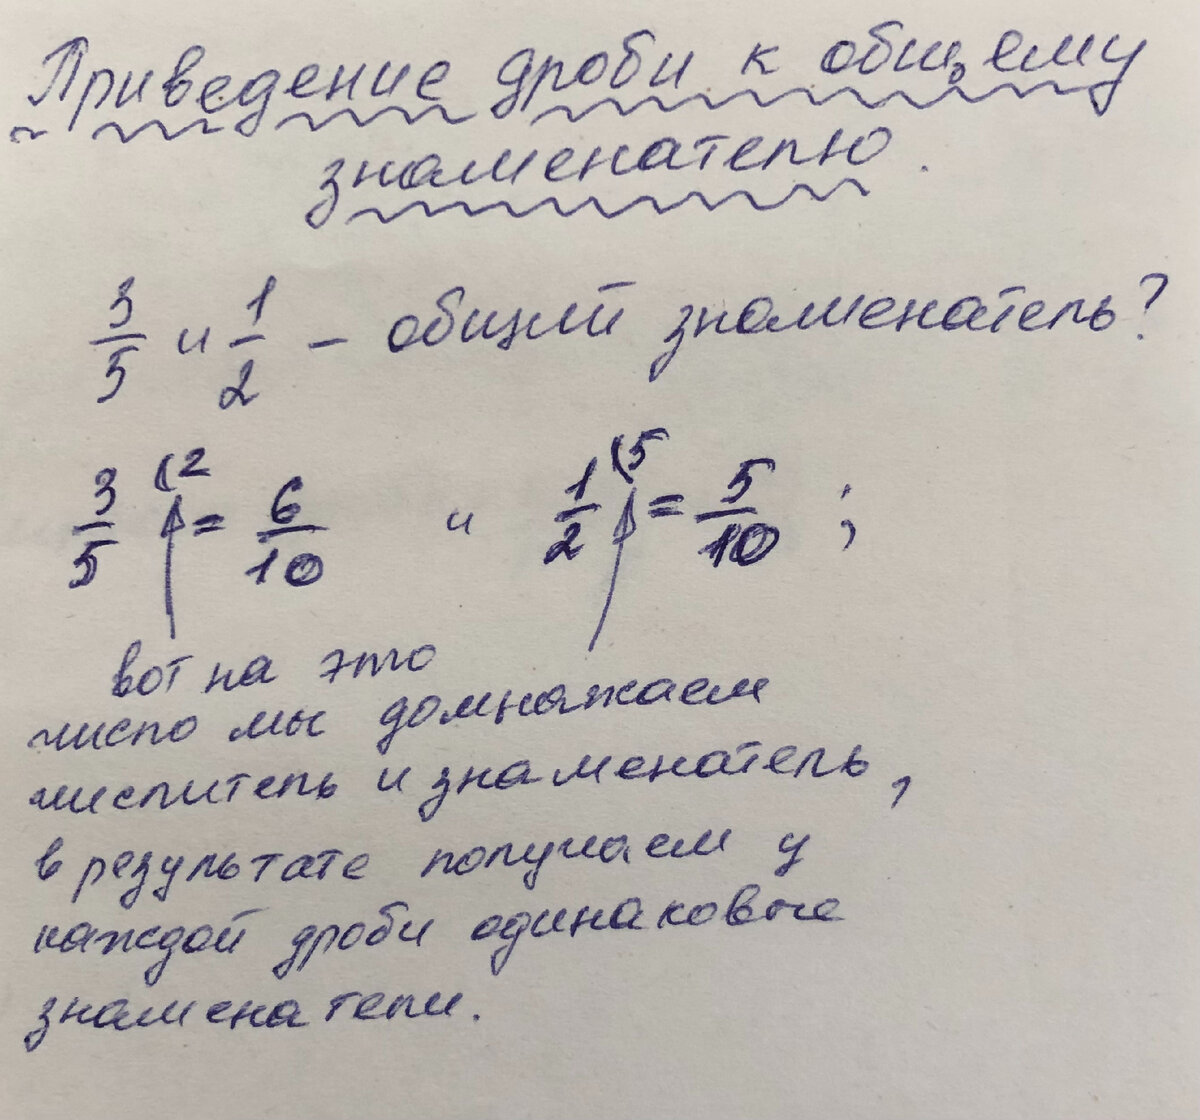 Приведение дроби к общему
знаменателю.
3/5 и 1/2 - общий знаменатель?
3/5 (2 = 6/10 и 1/2 (5 = 5/10 ;
вот на это
число мы домножаем
числитель и знаменатель,
в результате получаем у
каждой дроби одинаковые
знаменатели.